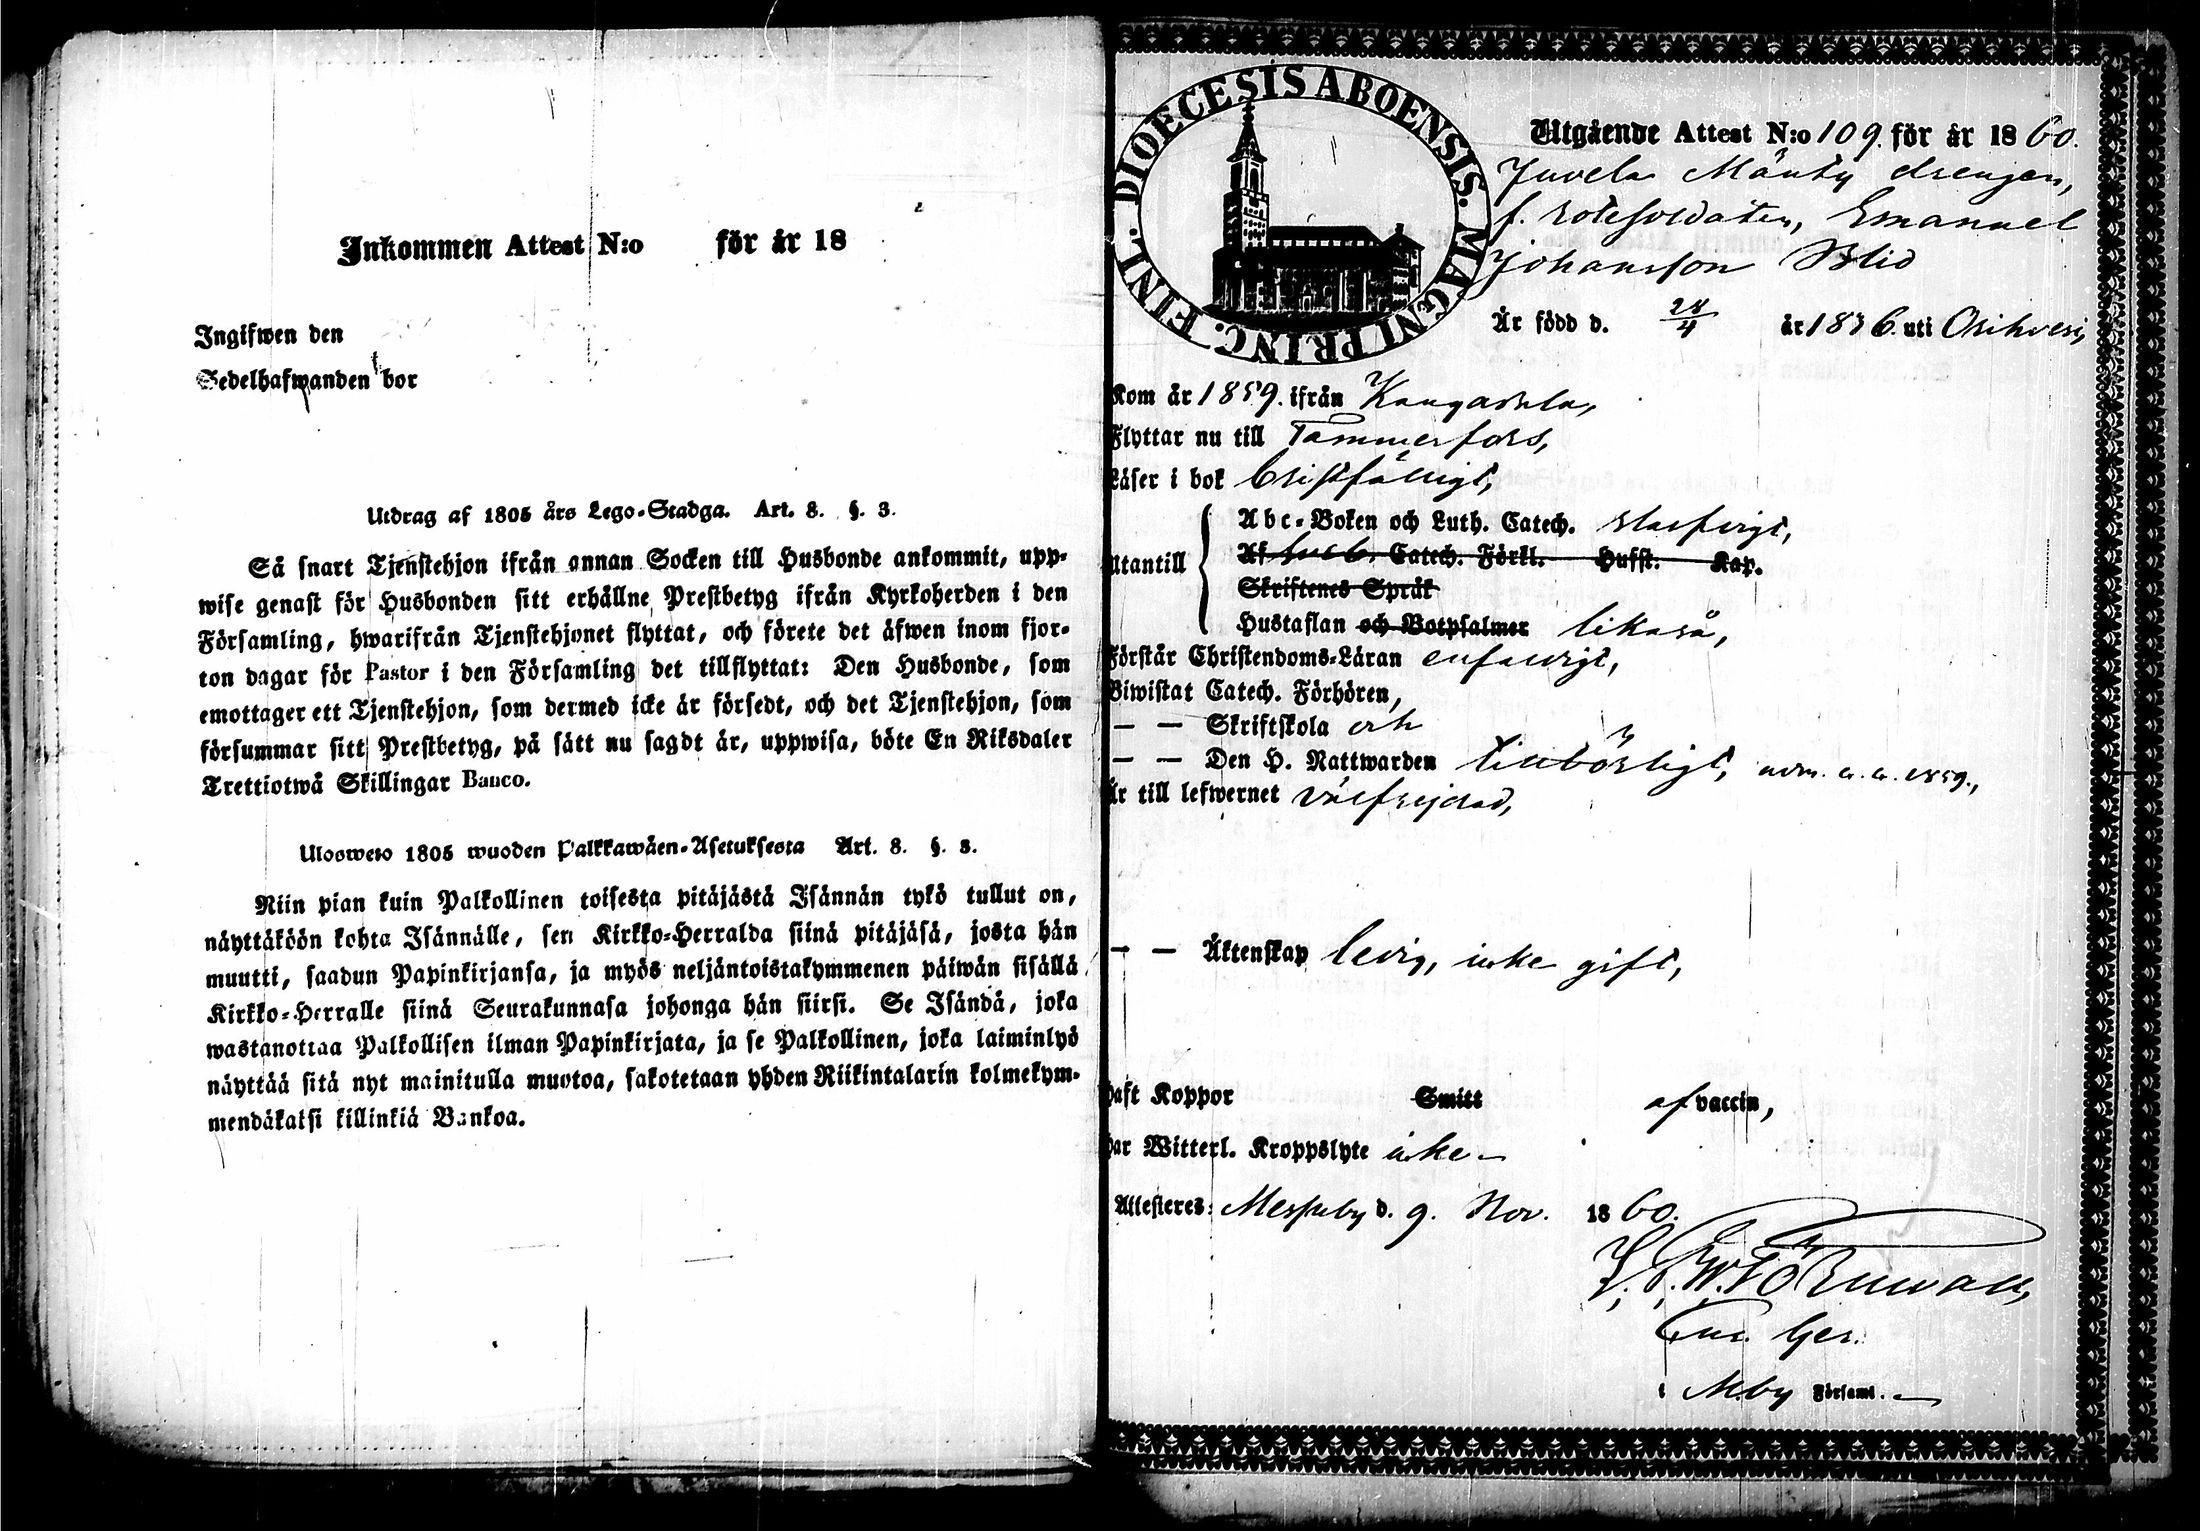 Inkommen Attest N:o för år 18
Ingifwen den
Sedelhafwanden bor
Utdrag af 1805 års Lego-Stadga. Art. 8. §. 3.
Så snart Tjenstehjon ifrån annan Socken till Husbonde ankommit, upp-
wise genast för Husbonden sitt erhållne Prestbetyg ifrån Kyrkoherden i den
Församling, hwarifrån Tjenstehjonet flyttat, och förete det äfwen inom fjor-
ton dagar för Pastor i den Församling det tillflyttat: Den Husbonde, som
emottager ett Tjenstehjon, som dermed icke är försedt, och det Tjenstehjon, som
försummar sitt Prestbetyg, på sätt nu sagdt är, uppwisa, böte En Riksdaler
Trettiotwå Skillingar Banco.
Uloswето 1805 wuoden Palkkawäen-Asetuksesta Art. 8. §. 3.
Niin pian kuin Palkollinen toisesta pitäjästä Isännän tykö tullut on,
näyttäköön kohta Isännälle, sen Kirkko-Herralda siinä pitäjäsä, josta hän
muutti, saadun Papinkirjansa, ja myös neljäntoistakymmenen päiwän sisällä
Kirkko-Herralle siinä Seurakunnasa johonga hän siirsi. Se Isändä, joka
wastanottaa Palkollisen ilman Papinkirjata, ja se Palkollinen, joka laiminlyö
näyttää sitä nyt mainitulla muotoa, sakotetaan yhden Riikintalarin kolmekym-
mendäkatsi killinkiä Bankoa.
FINL. DIOECESIS ABOENSIS. MAGNI PRINC.
Utgående Attest N:o 109. för år 1860.
Juvela Mänty drengen,
f. rotesoldaten, Emanuel
Johansson Blid
Är född d. 28/4 år 1836. uti Orihvesi,
Kom år 1859. ifrån Kangasala,
Flyttar nu till Tammerfors,
Läser i bok bristfälligt,
Abc-Boken och Luth. Catech. slarfvigt,
Utantill Af Catech. Förkl. Hufst. Kap.
Skriftenes Språk
Hustaflan och Botpsalmer likaså,
Förstår Christendoms-Läran enfaldigt,
Biwistat Catech. Förhören,
— — Skriftskola och
— — Den H. Nattwarden tillbörligt, 1859.,
Är till lefwernet välfrejdad,
— — Äktenskap ledig, icke gift,
haft Koppor Smitt af vaccin,
har Witterl. Kroppslyte icke –
Attesteres: Messuby d. 9. Nov. 1860.
i M:by Församl. –